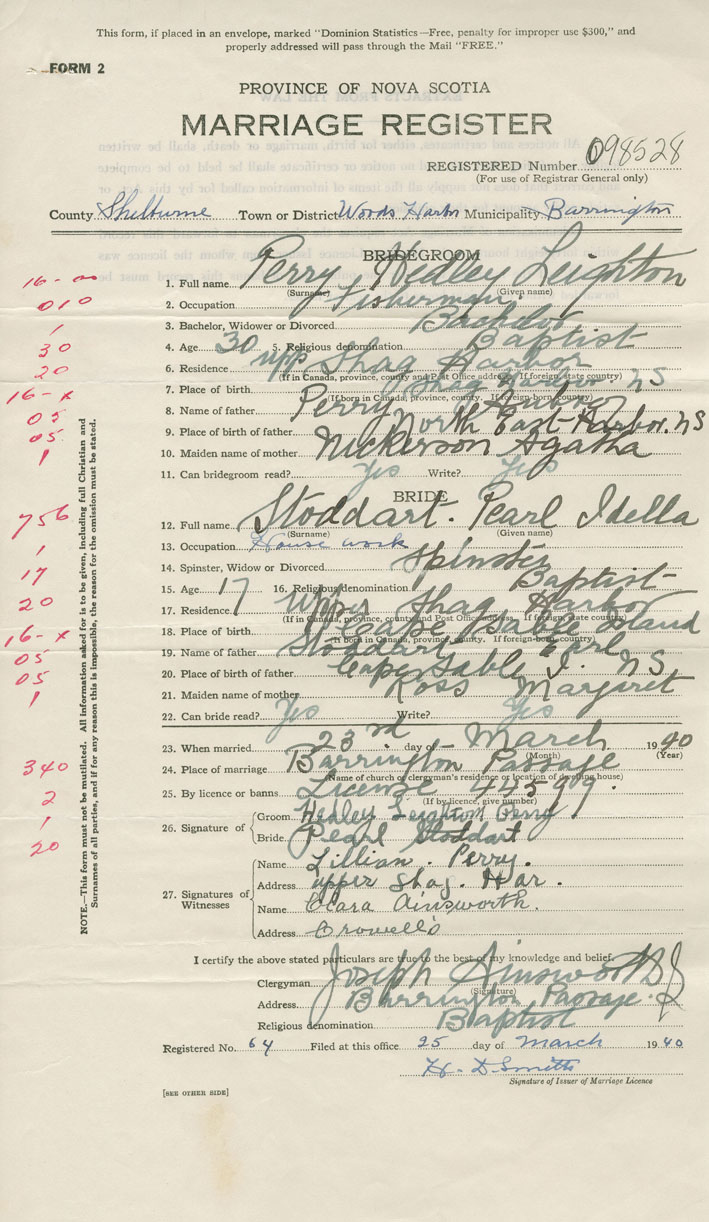 This form, if placed in an envelope, marked "Dominion Statistics—Free, penalty for improper use $300," and
properly addressed will pass through the Mail "FREE."
FORM 2
PROVINCE OF NOVA SCOTIA
MARRIAGE REGISTER
REGISTERED Number 098528
(For use of Registrar General only)
County Shelburne Town or District Woods Harbor Municipality Barrington
BRIDEGROOM
1. Full name Perry Hedley Leighton
(Surname) (Given name)
16-
2. Occupation Fisherman
010
3. Bachelor, Widower or Divorced Bachelor
1
4. Age 30 5. Religious denomination Baptist
30
6. Residence upp Shag Harbor
20
(If in Canada, province, county and Post Office address. If foreign, state country)
7. Place of birth Shag Harbor. NS
16-x
(If born in Canada, province, county. If foreign-born country)
8. Name of father Perry
05
9. Place of birth of father North East Harbor. NS
05
10. Maiden name of mother Nickerson Agatha
1
11. Can bridegroom read? Yes Write? Yes
BRIDE
12. Full name Stoddart. Pearl Idella
756
(Surname) (Given name)
13. Occupation House work
1
14. Spinster, Widow or Divorced Spinster
17
15. Age 17 16. Religious denomination Baptist
20
17. Residence Upper Shag Harbor
(If in Canada, province, county and Post Office address. If foreign, state country)
18. Place of birth Cape Sable Island
16-x
(If born in Canada, province, county. If foreign-born country)
19. Name of father Stoddart Earl
05
20. Place of birth of father Cape Sable I. NS
05
21. Maiden name of mother Ross Margaret
1
22. Can bride read? Yes Write? Yes
23. When married 23rd day of March 1940
(Month) (Year)
24. Place of marriage Barrington Passage
340
(Name of church or clergyman's residence or location of dwelling house)
25. By licence or banns License 44599.
2
(If by licence, give number)
26. Signature of
Groom Hedley Leighton Perry
1
Bride Pearl Stoddart
20
27. Signatures of Witnesses
Name Lillian. Perry.
Address upper Shag. Har.
Name Clara Ainsworth.
Address Crowell's
I certify the above stated particulars are true to the best of my knowledge and belief.
Clergyman Joseph Ainsworth
(Signature)
Address Barrington Passage.
Religious denomination Baptist
Registered No. 64 Filed at this office 25 day of March 1940
H. D Smith
Signature of Issuer of Marriage Licence
[SEE OTHER SIDE]
NOTE.—This form must not be mutilated. All information asked for is to be given, including full Christian and
Surnames of all parties, and if for any reason this is impossible, the reason for the omission must be stated.